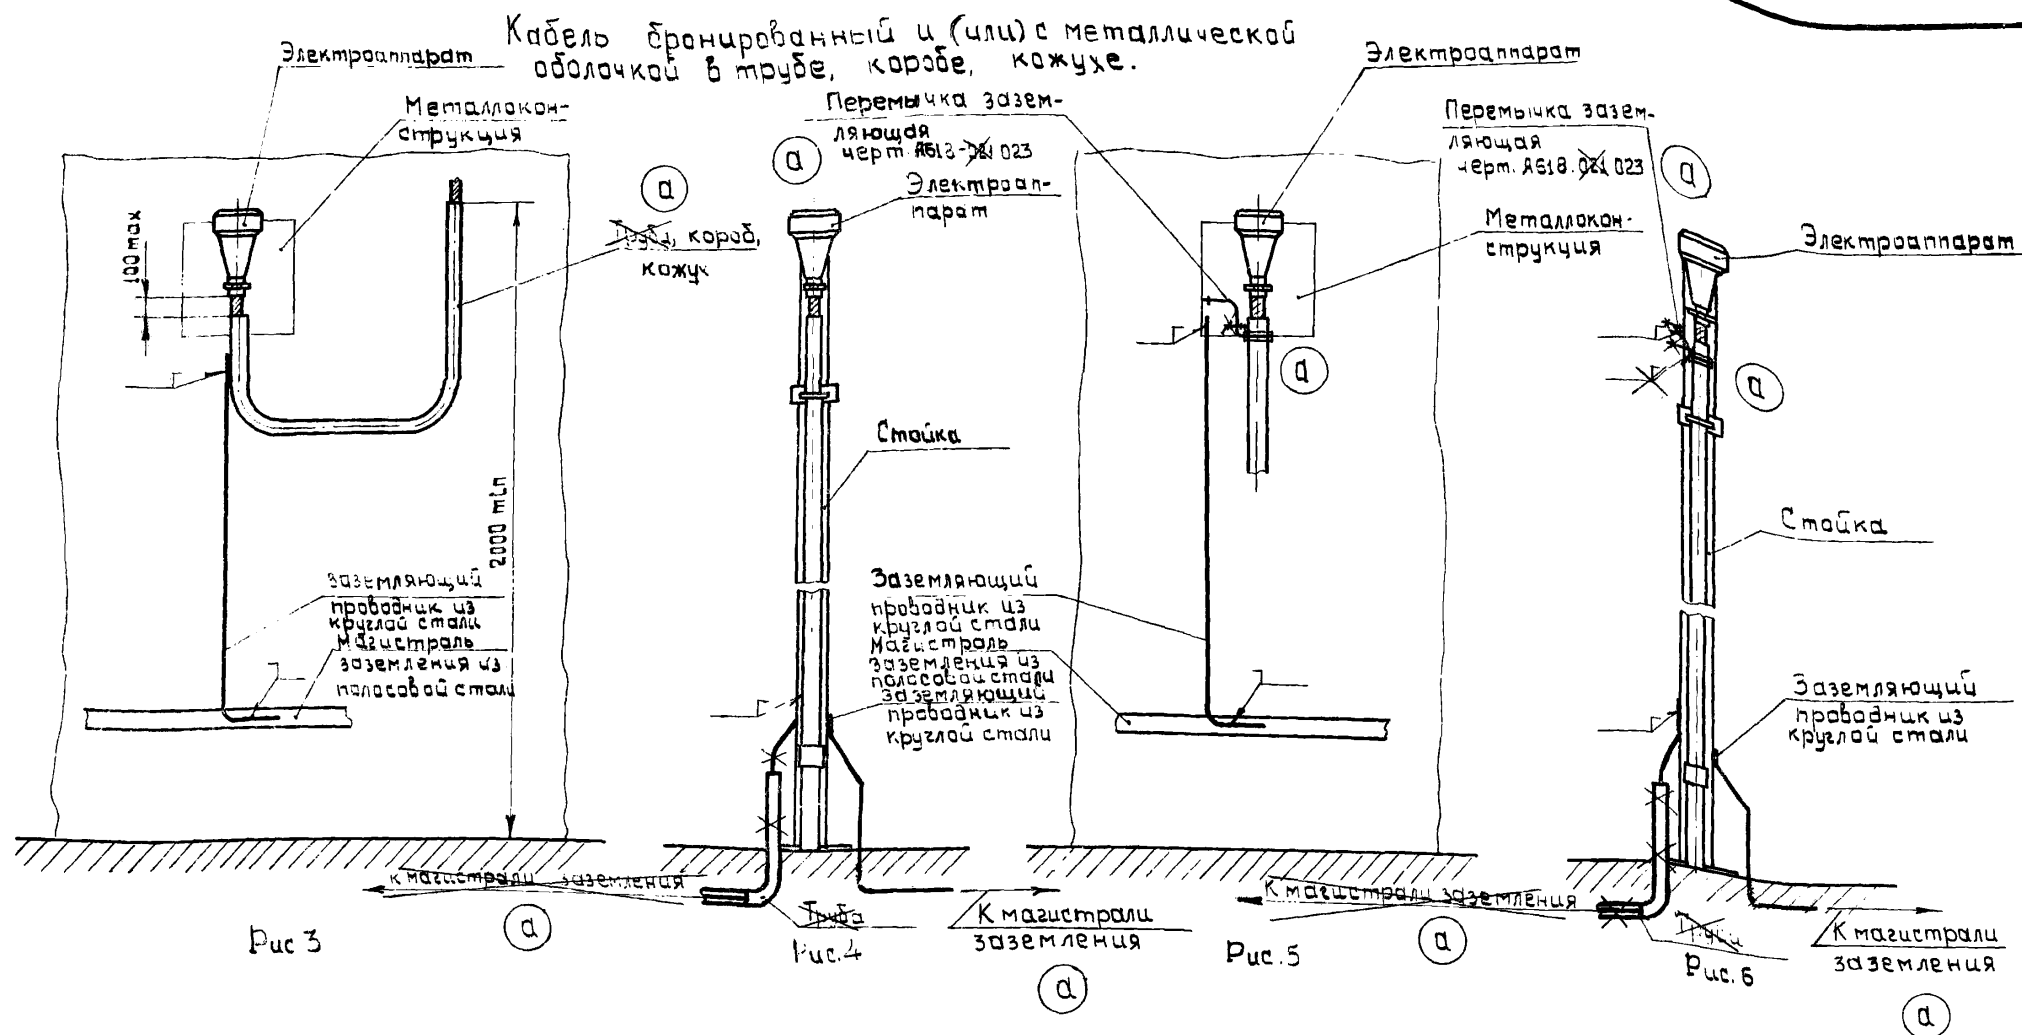 Кабель бронированный и (или) с металлической
оболочкой в трубе, коробе, кожухе.
Электроаппарат
Металлокон-
струкция
100 max
2000 min
Труба, короб,
кожух
а
заземляющий
проводник из
круглой стали
магистраль
заземления из
полосовой стали
к магистрали заземления
а
Рис 3
Перемычка зазем-
ляющая
черт. А618-021 023
а
Электроап-
парат
Стойка
Заземляющий
проводник из
круглой стали
Магистраль
заземления из
полосовой стали
Заземляющий
проводник из
круглой стали
Труба
К магистрали
заземления
а
Рис.4
Электроаппарат
Металлокон-
струкция
а
К магистрали заземления
а
Рис.5
Перемычка зазем-
ляющая
черт. А618.021 023
а
Электроаппарат
а
Стойка
Заземляющий
проводник из
круглой стали
Труба
К магистрали
заземления
а
Рис.6